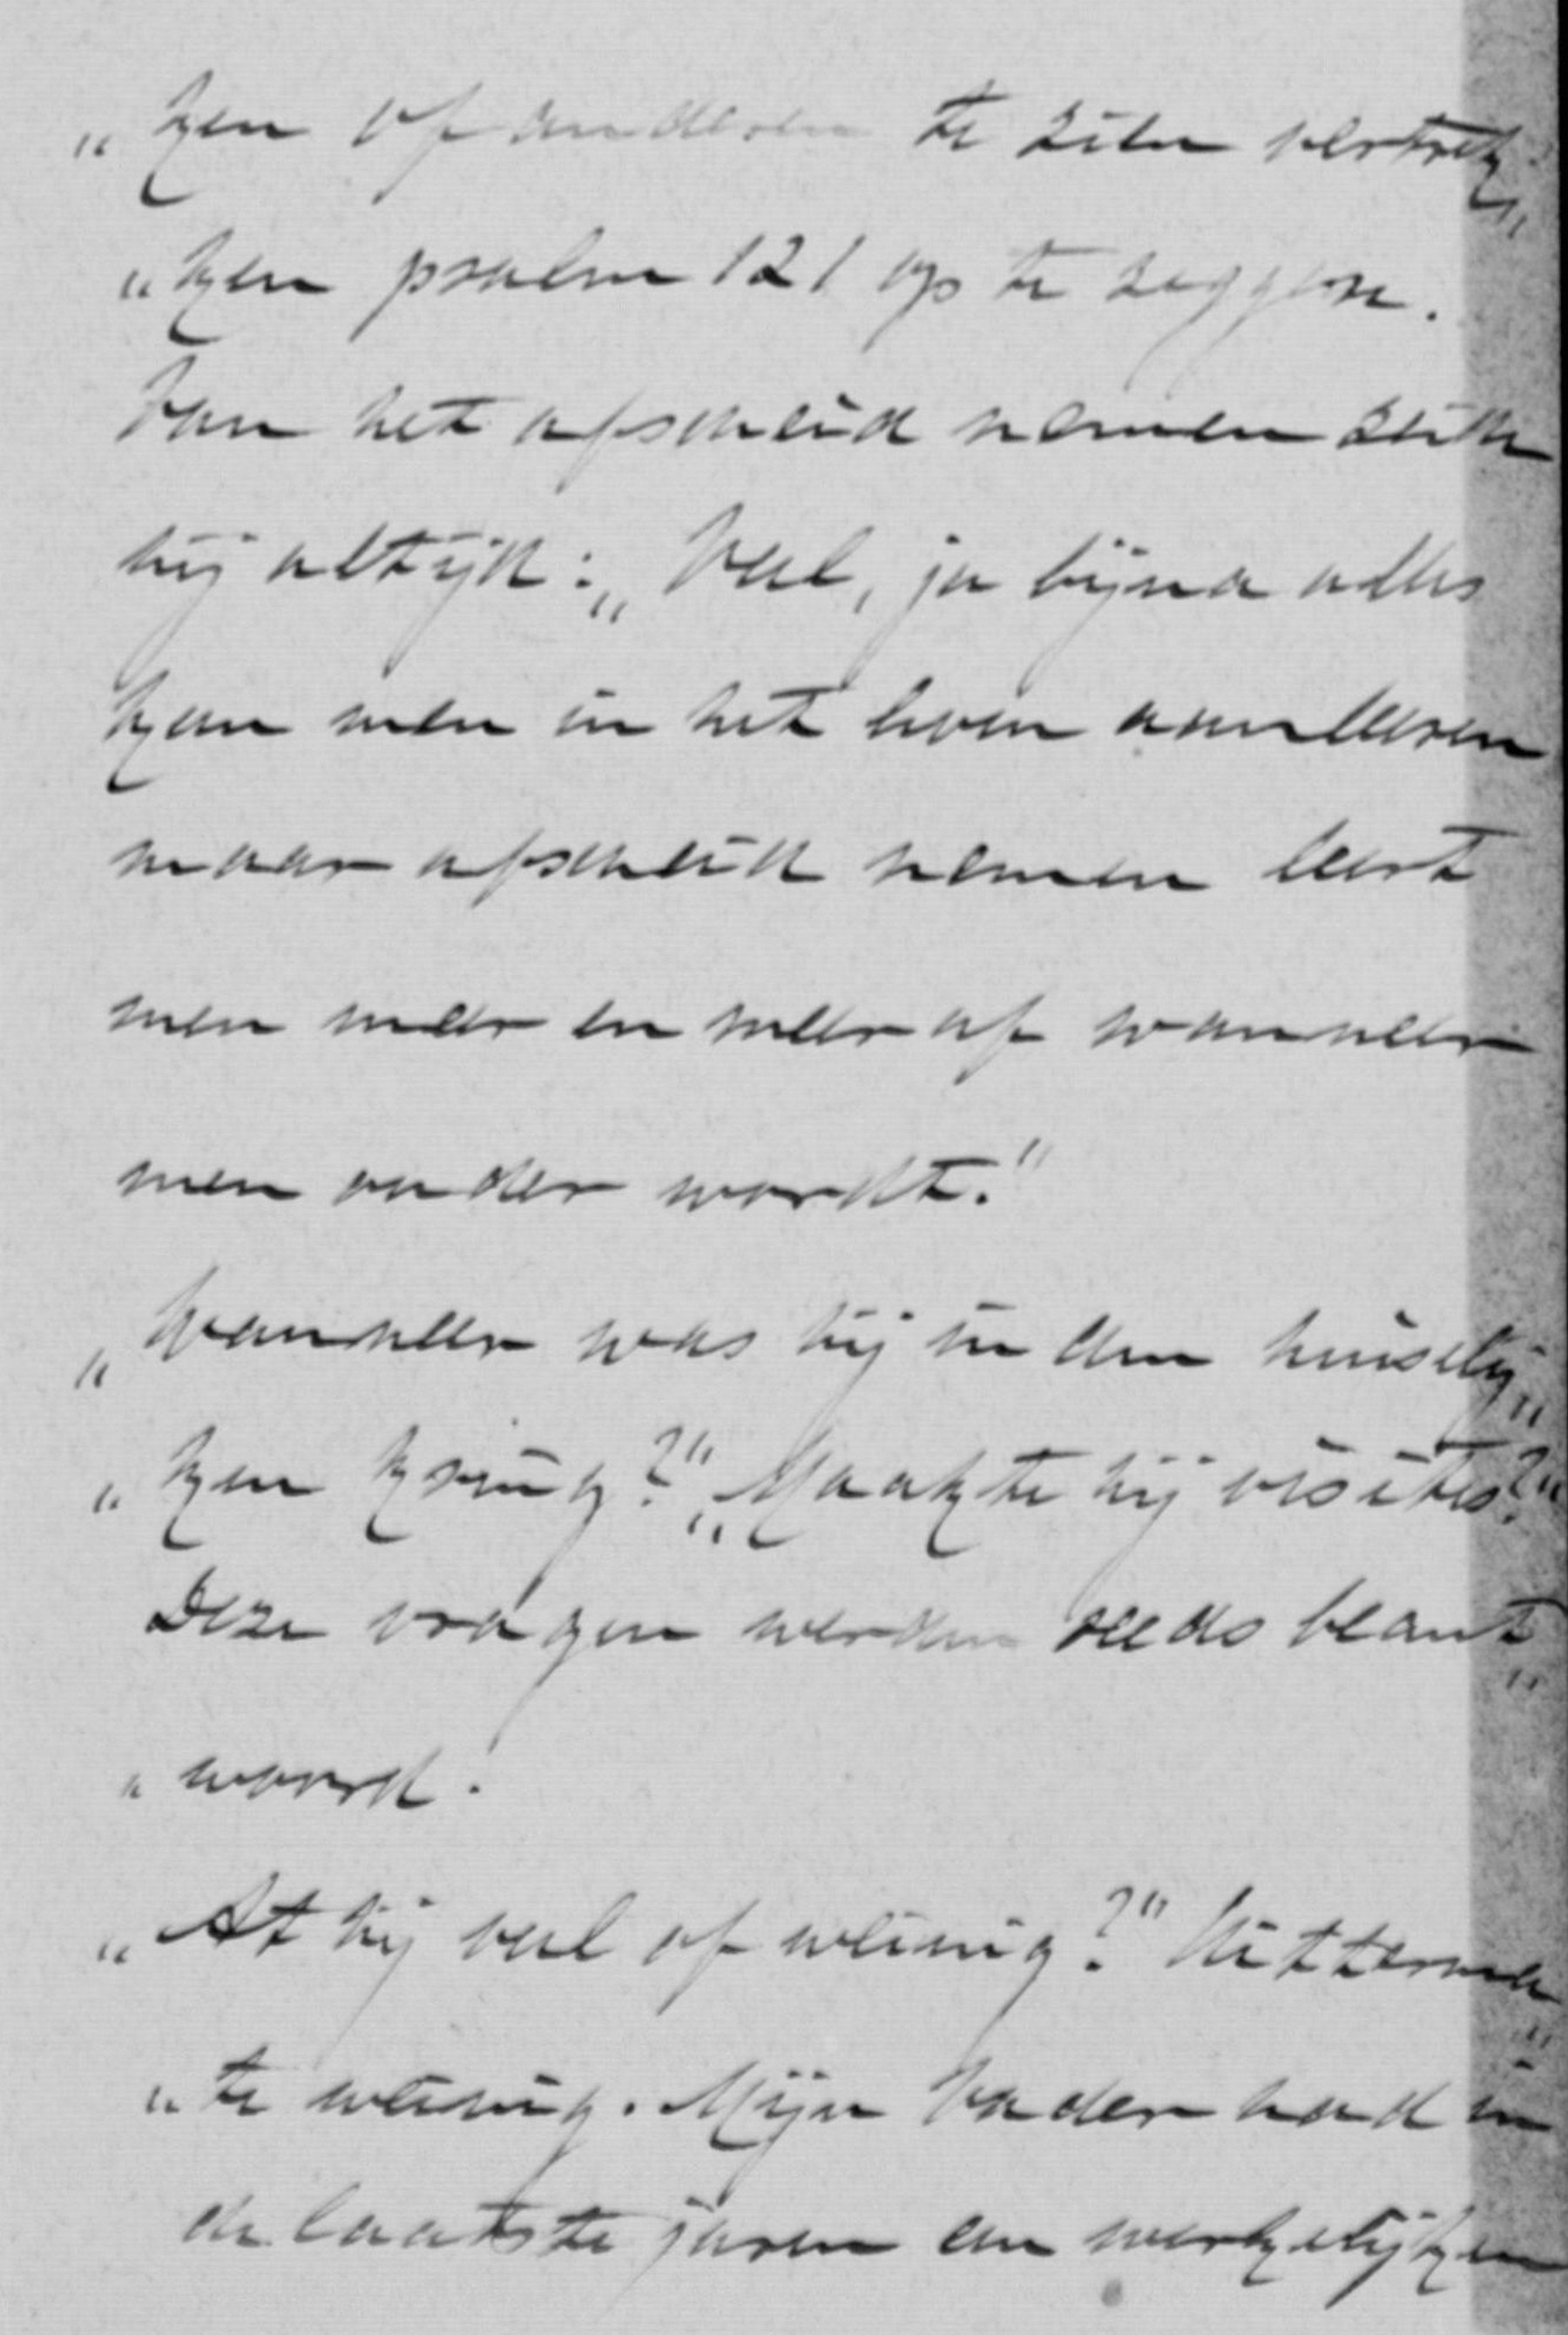 „ken of anderen te zien vertrek„
„ken psalm 121 op te zeggen.
Van het afscheid nemen zeide
hij altijd: „Veel, ja bijna alles
kan men in het leven aanleeren
maar afscheid nemen leert
men meer en meer af wanneer
men ouder wordt."
„Wanneer was hij in den huiselij„
„ken kring?" „Maakte hij visites?"
Deze vragen werden reeds beant„
„woord.
„At hij veel of weinig?" Uitterma„
„te weinig. Mijn Vader had in
de laatste jaren een werkelijken